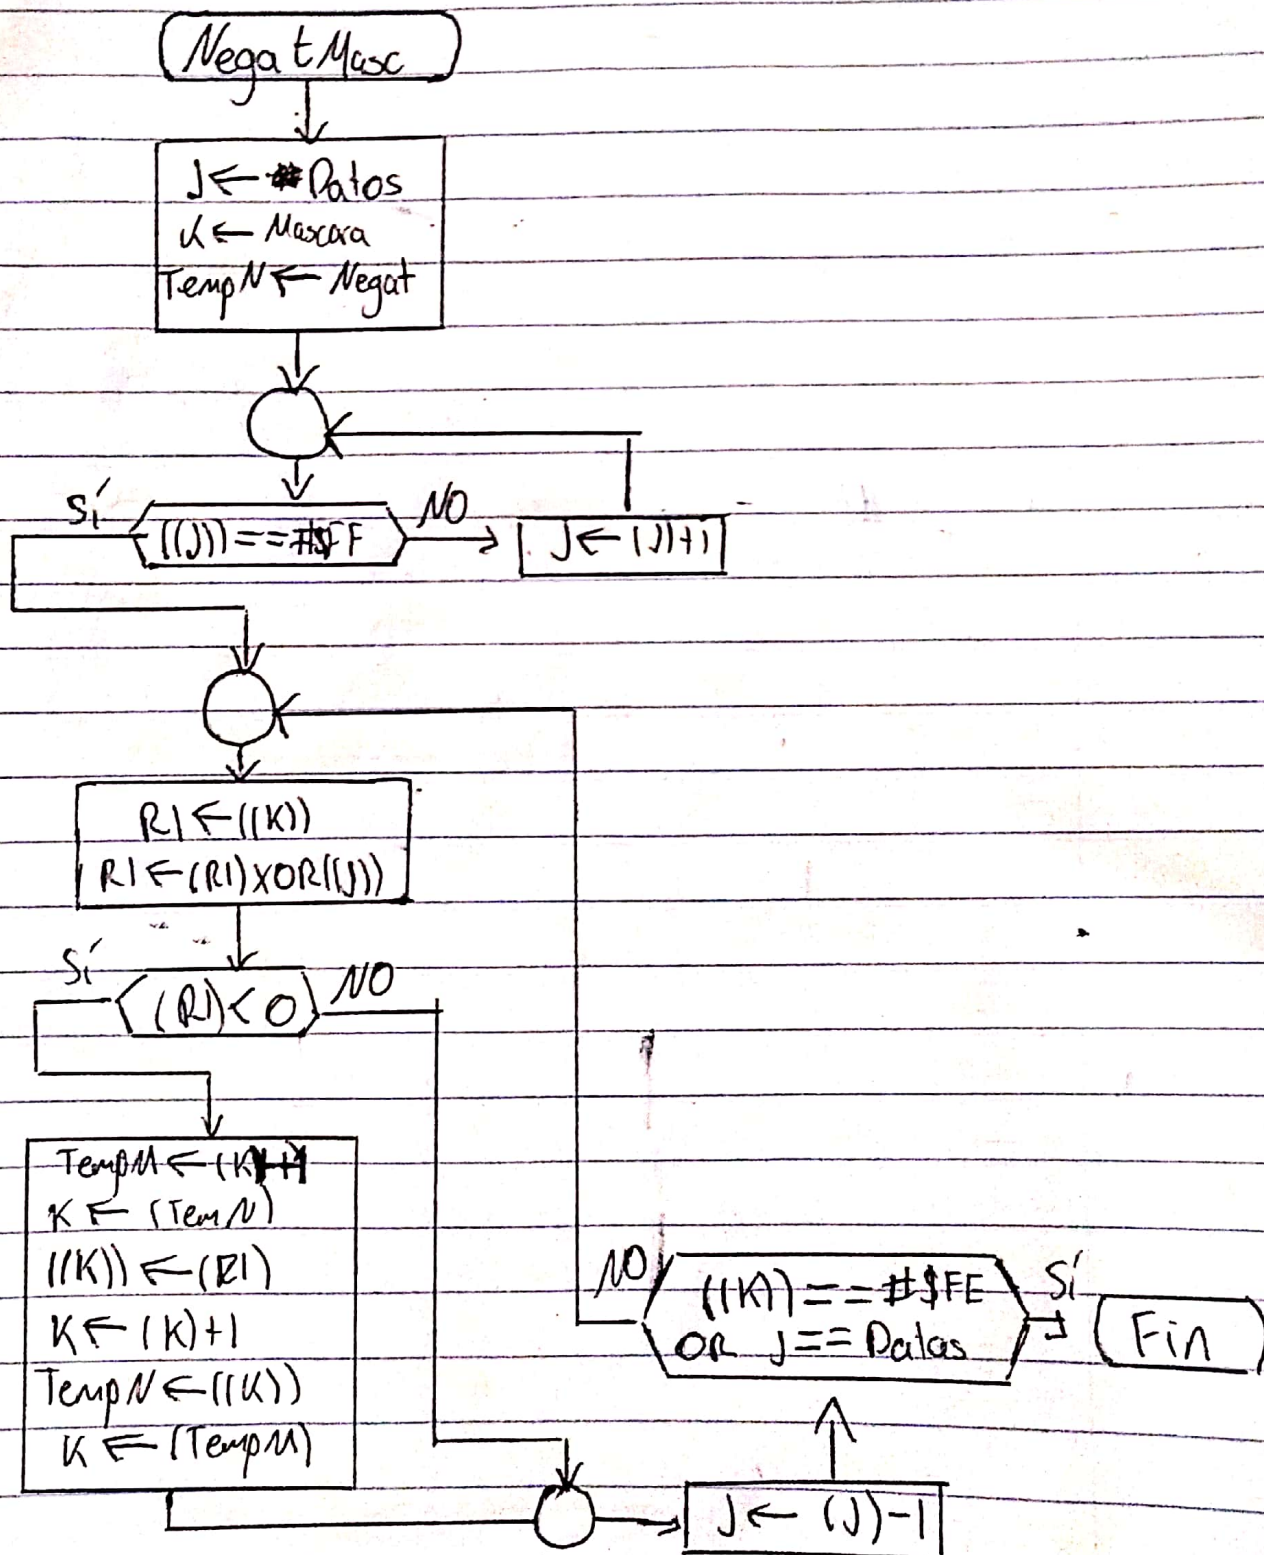 NegatMasc
J ← #Datos
K ← Mascara
TempN ← Negat
Sí
((J)) == #$FF
NO
J ← (J)+1
R1 ← ((K))
R1 ← (R1) XOR ((J))
Sí
(R1) < 0
NO
TempM ← (K)
K ← (TemN)
((K)) ← (R1)
K ← (K)+1
TempN ← ((K))
K ← (TempM)
J ← (J)-1
NO
((K)) == #$FE
OR J == Datos
Sí
Fin